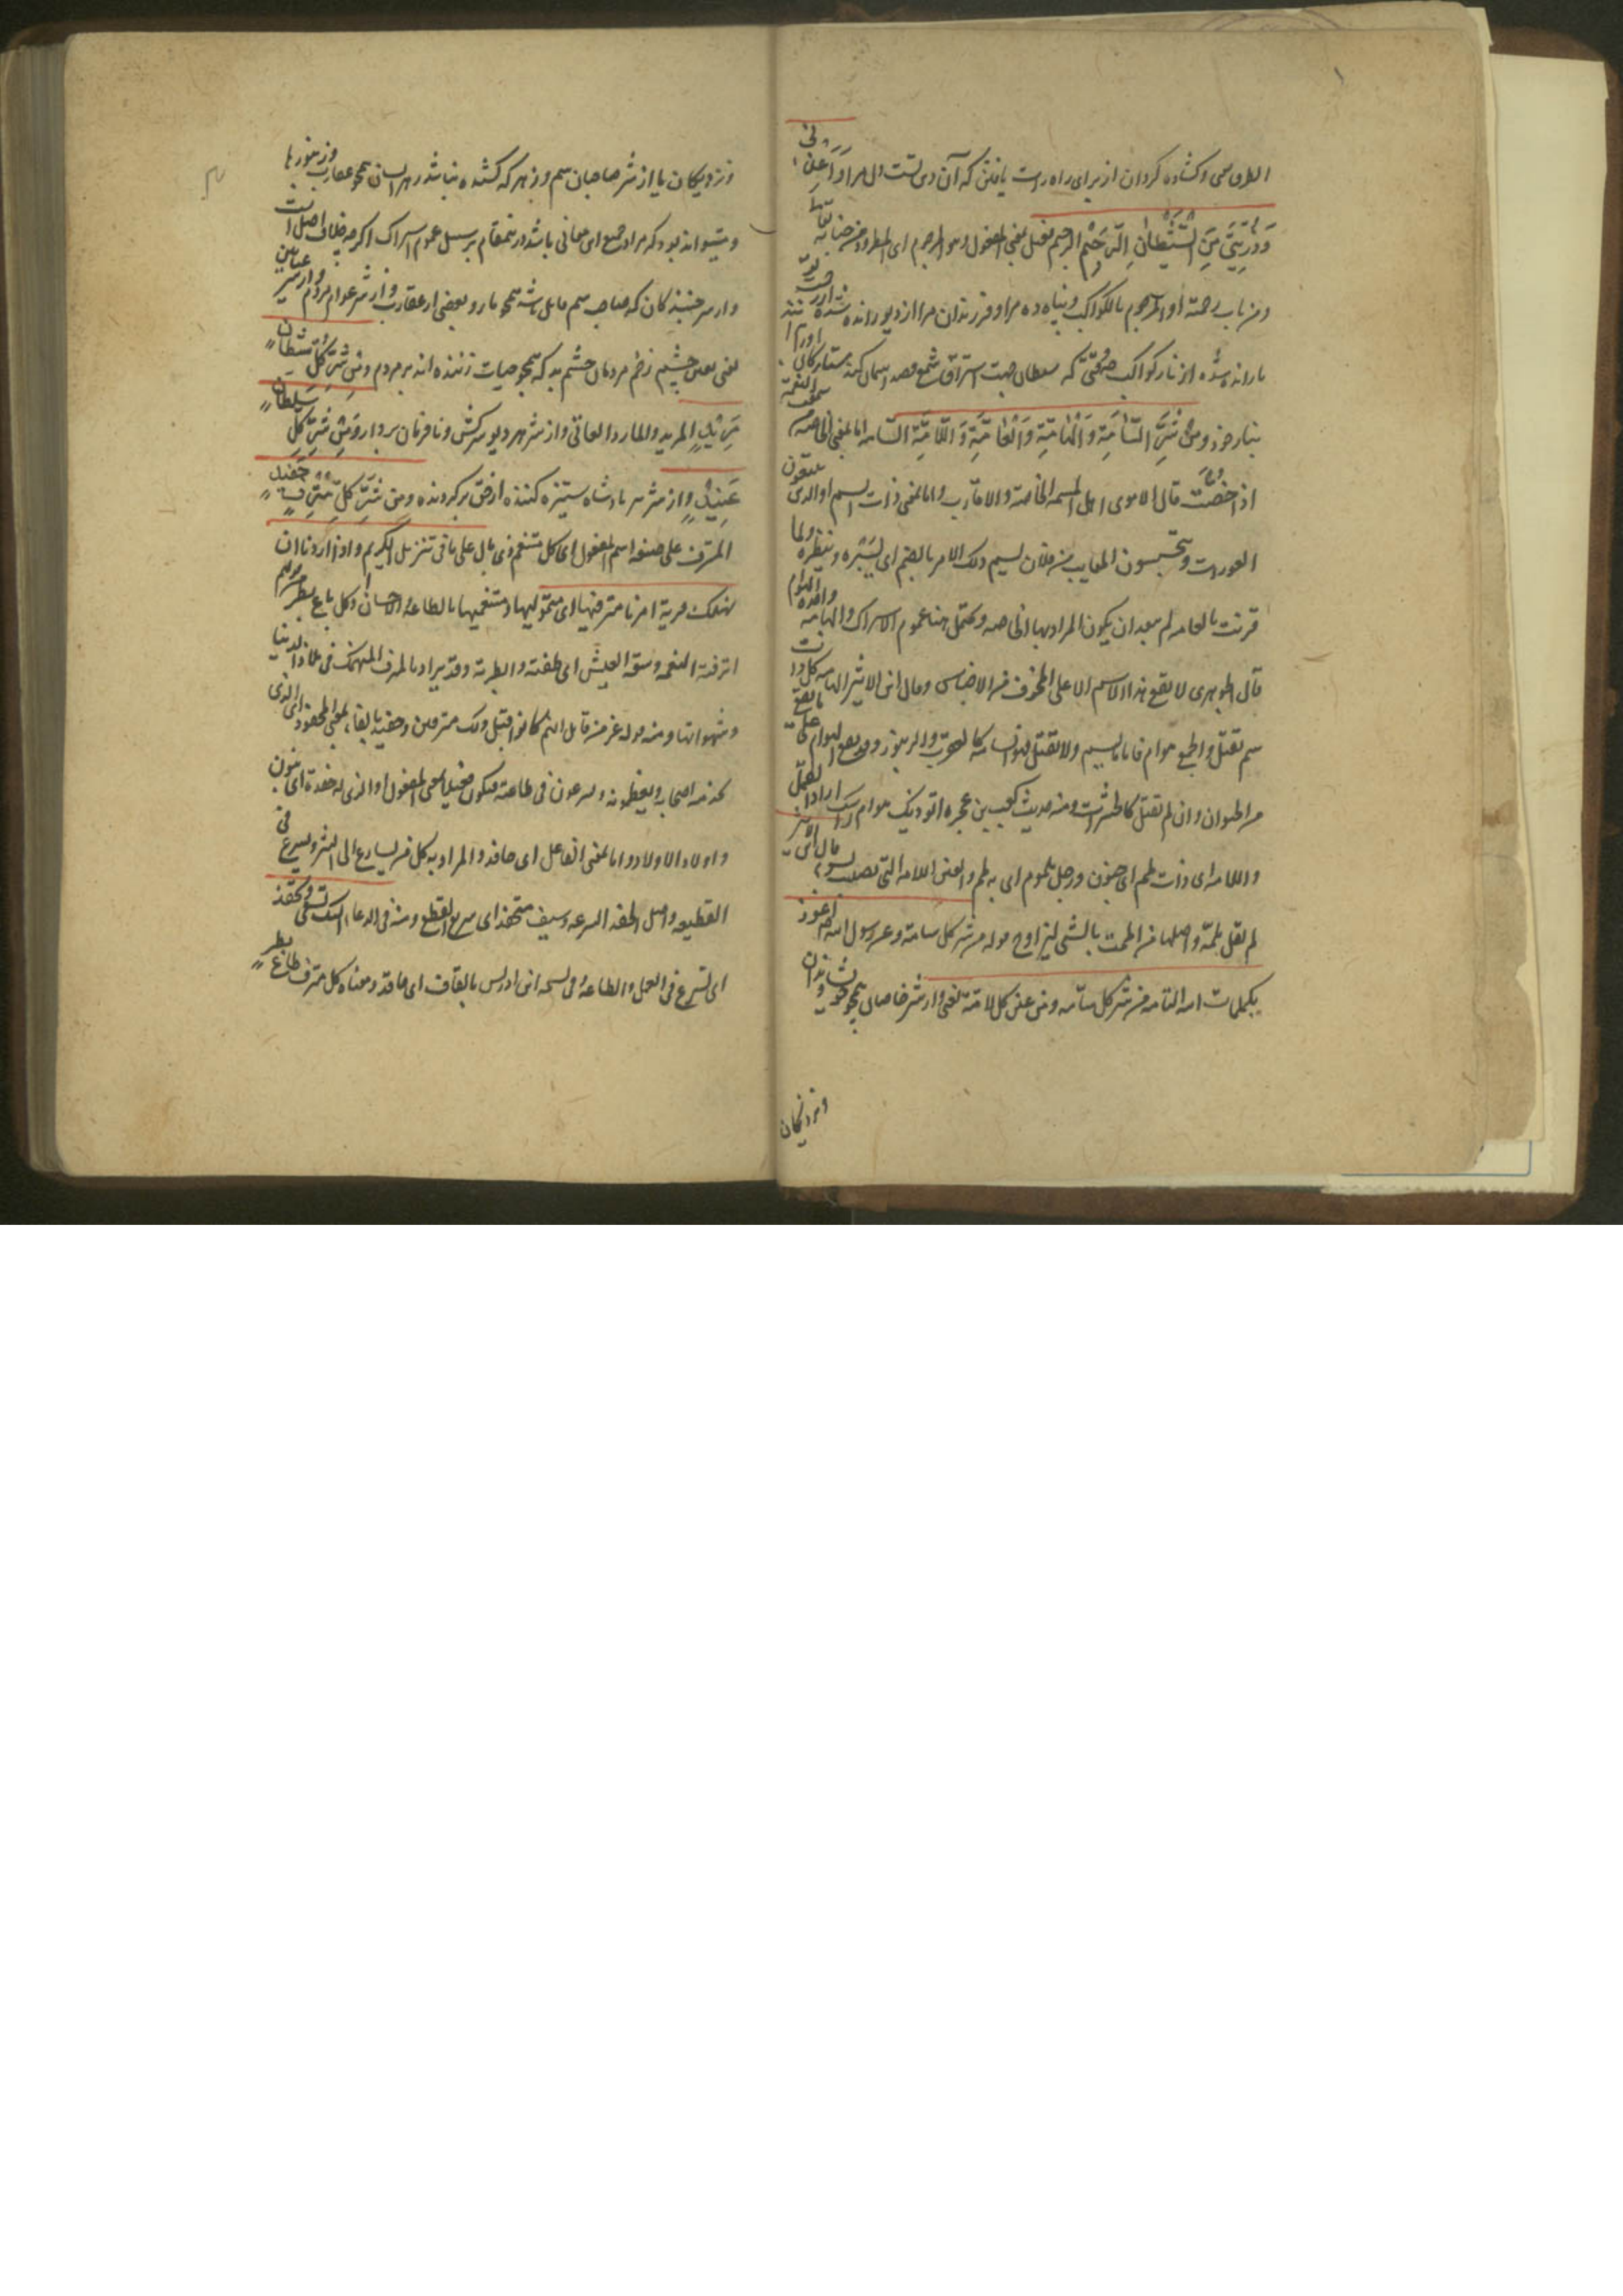 از برای راه راست یافتن که آن دین تست دل مرا وَاَعِذْنی
وَذُرِّیَّتی مِنَ الشَّیْطانِ الرَّجیمِ الرجیم فعیل بمعنی المفعول وهو المرجوم ای المطرود من
ومن باب رحمته او المرجوم بالکواکب و پناه ده مرا و فرزندان مرا از دیو رانده شده
یا رانده شده از نار کواکب که شیطان جهت استراق سمع قصد آسمان کند
وَمِنْ شَرِّ السّامَّةِ وَالْهامَّةِ وَالْعامَّةِ وَاللّامَّةِ السّامه اما بمعنی الخاصه
اذا خصّت قال الاموی اهل المسمه الخاصة والاقارب واما بمعنی ذات السم او الذین یتبعون
العورات و یتجسسون المعایب من فلان یسم ذلک الامر بالضم ای یسبره و ینظره ولما
قرنت بالعامه لم یبعد ان یکون المراد بها الخاصه و یحتمل هنا عموم الاشراک والهامه واحدة الهوام
قال الجوهری لا یقع هذا الاسم الا علی المخوف من الاحناش وقال ابن الاثیر الهامه کل ذات
سم یقتل والجمع هوام فاما ما یسم ولا یقتل فهو السامه کالعقرب والزنبور وقد یقع الهوام علی ما یقع
من الحیوان وان لم یقتل کالحشرات ومنه حدیث کعب بن عجره اتوذیک هوام راسک اراد القمل
واللامه ای ذات لمم ای جنون و رجل ملموم ای به لمم والعین اللامه التی تصیب بسوء قال ابن الاثیر
لم یقل ملمّة واصلها من الممت بالشی لیزاوج قوله من شر کل سامة وعن رسول الله اعوذ
بکلمات الله التامه من شر کل سامه ومن عین کل لامّة یعنی و از شر خاصان همچو خویشاوندان و
ونزدیکان
ونزدیکان یا از شر صاحبان سم و زهر که کشنده نباشد زهر ایشان همچو عقارب و زنبورها
ومیتواند بود که مراد جمیع این معانی باشد درینمقام بر سبیل عموم اشتراک اگرچه خلاف اصل است
واز شر جنبندگان که صاحب سم قاتل باشد همچو مار و بعضی از عقارب و از شر عوام مردم و از شر
یعنی چشم زخم مردمان چشم بد که همچو حیات زننده اند بر مردم وَمِنْ شَرِّ کُلِّ شَیْطانٍ
مَریدٍ المرید والمارد العاتی و از شر هر دیو سرکش و نافرمان بردار وَمِنْ شَرِّ کُلِّ سُلْطانٍ
عَنیدٍ و از شر هر پادشاه ستیزه کننده از حق برگردنده وَمِنْ شَرِّ کُلِّ مُتْرَفٍ حَفیدٍ
المترف علی صیغه اسم المفعول ای کل متنعم ذی بال علی ما فی تنزیل الکریم واذا اردنا ان
نهلک قریة امرنا مترفیها ای متموّلیها و متنعمیها بالطاعة
اترفته النعمه وسعة العیش ای اطغته وابطرته وقد یراد بالمترف المنهمک فی ملاذ الدنیا
وشهواتها ومنه قوله عز من قائل انهم کانوا قبل ذلک مترفین وحفید بالفاء بمعنی المحفود ای الذی
یخدمه اصحابه و یعظمونه و یسرعون فی طاعته فیکون فعیلا بمعنی المفعول او الذی له حفدة ای بنون
واولاد الاولاد واما بمعنی الفاعل ای حافد والمراد به کل من یسارع الی الشر و یسرع فی
القطیعه واصل الحفد السرعه وسیف محتفد ای سریع القطع ومنه فی الدعاء الیک نسعی ونحفد
ای نسرع فی العمل والطاعة وفی نسخه ابن ادریس بالقاف ای حاقد ومعناه کل مترف طاغ بطر